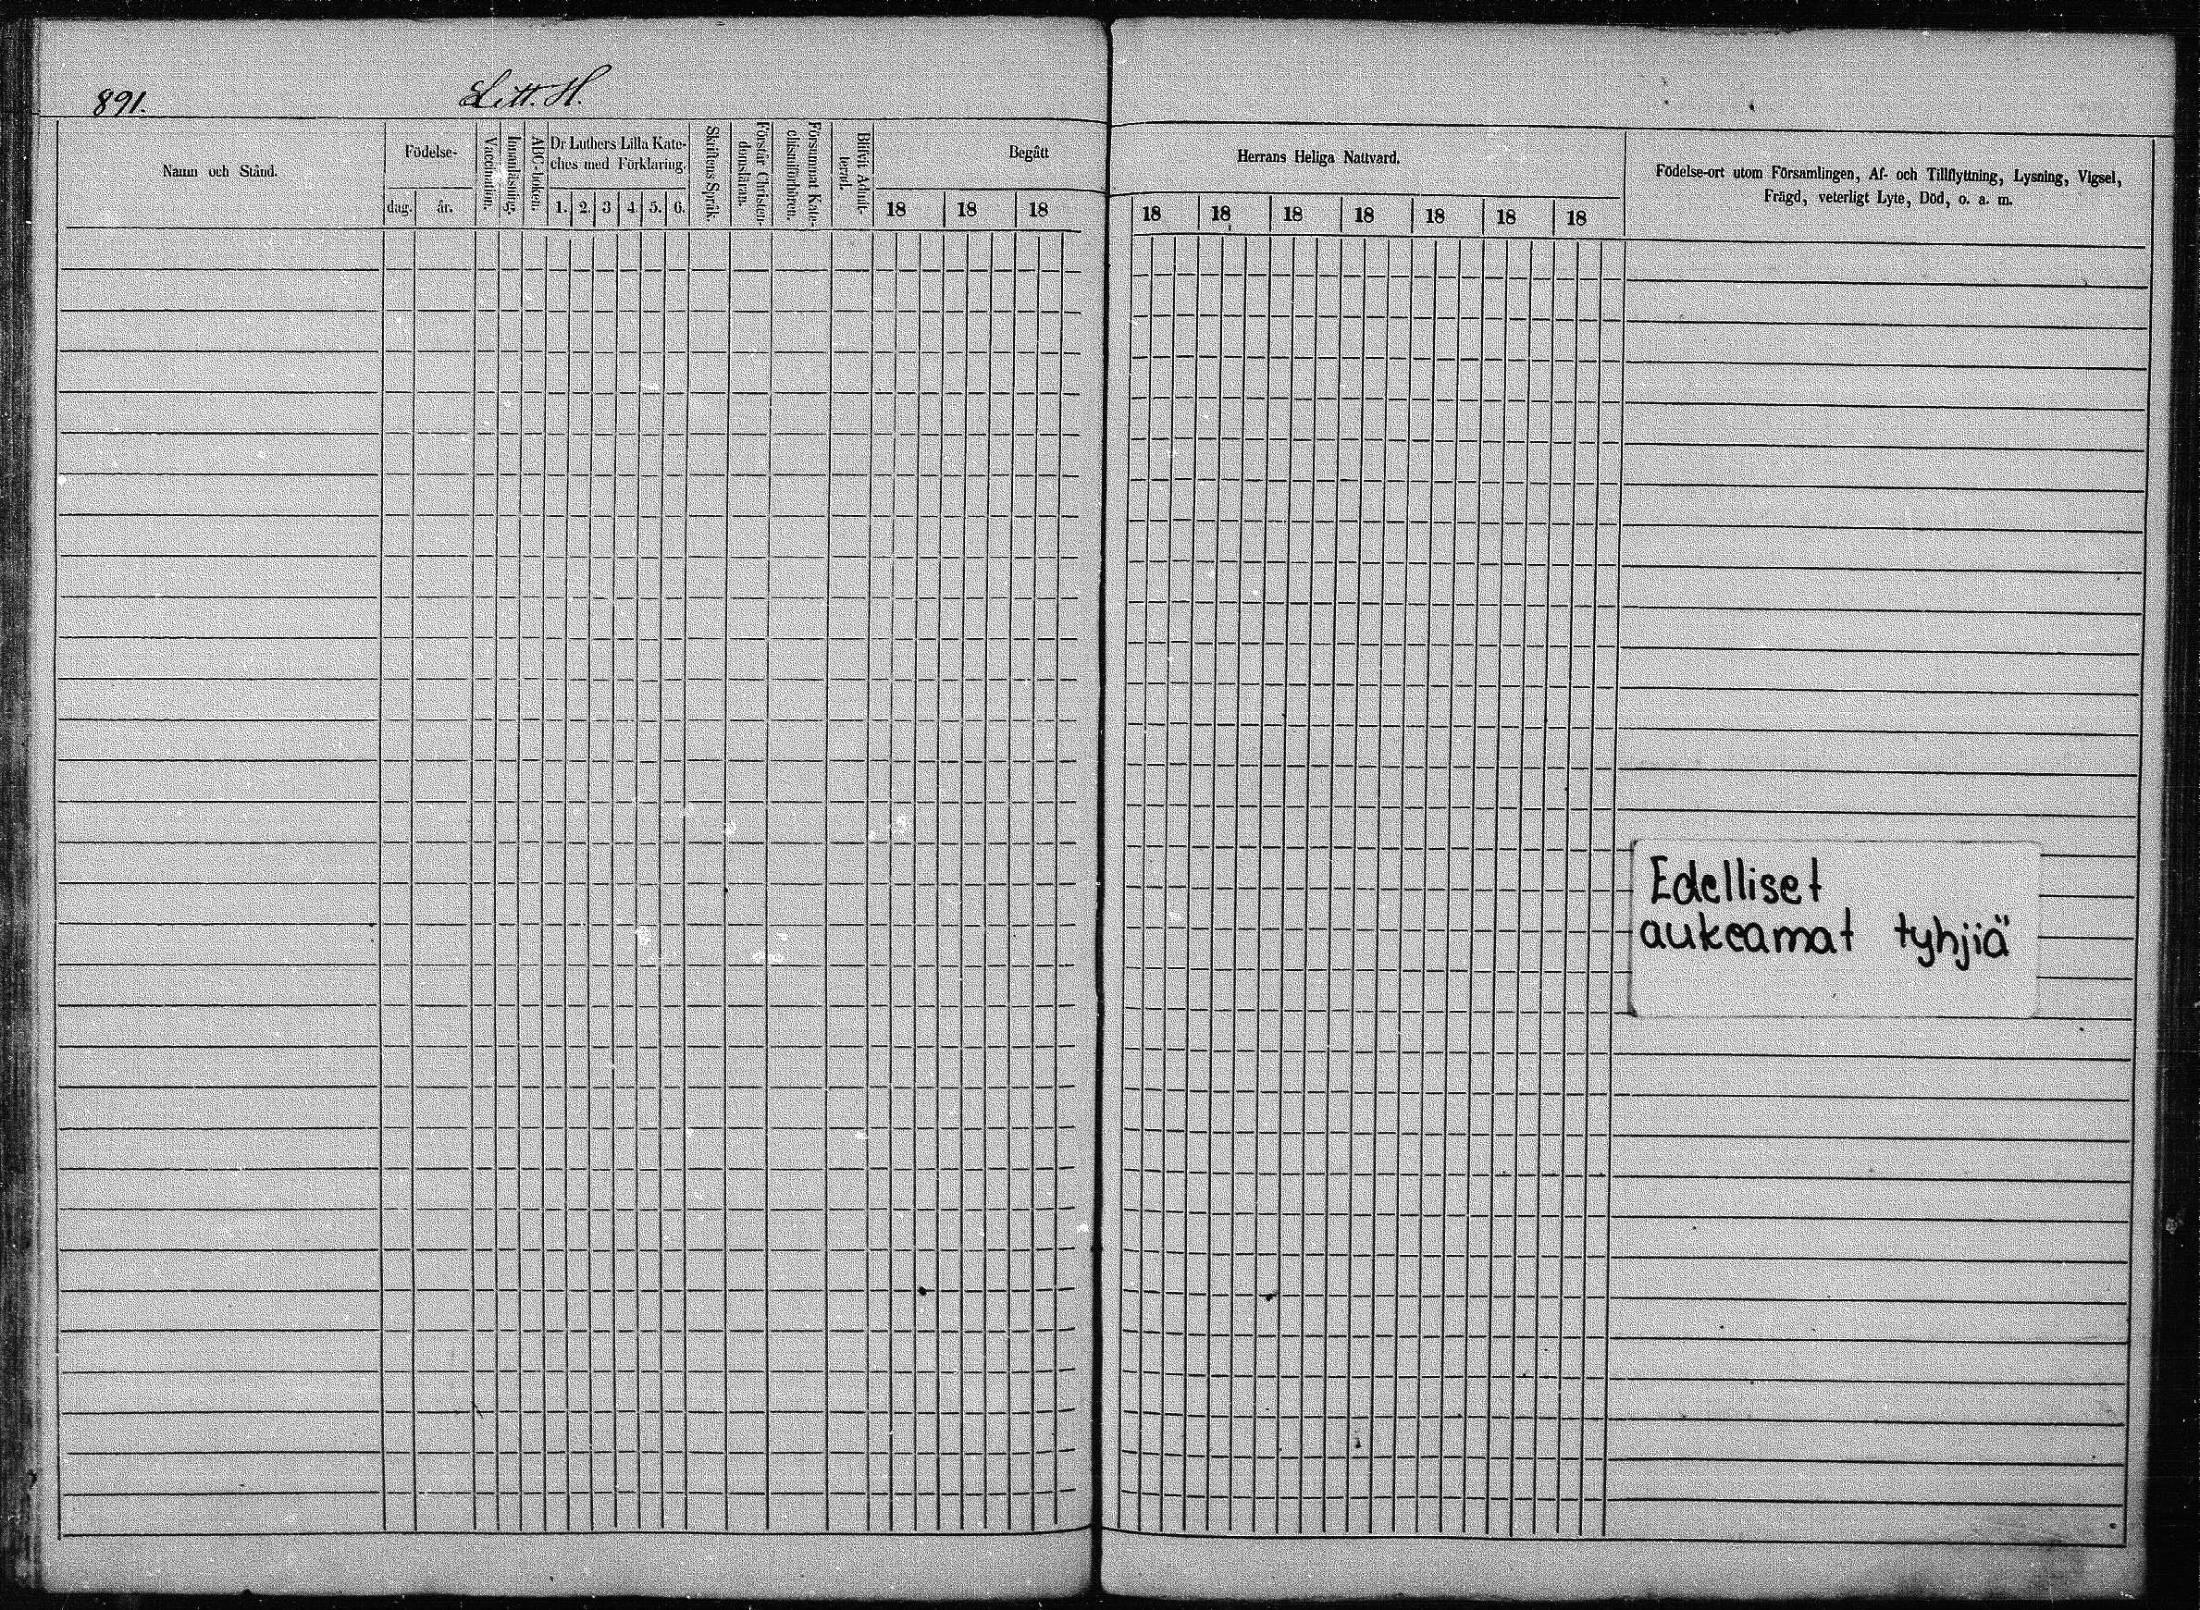 891.
Litt. H.
Namn och Stånd.
Födelse-
dag.
år.
Vaccination.
Innanläsning.
ABC-boken.
Dr Luthers Lilla Kate-
ches med Förklaring.
1. 2. 3 4 5. 6.
Skriftens Språk.
Förstår Christen-
domsläran.
Försummat Kate-
chismiförhören.
Blifvit Admit-
terad.
Begått
18 18 18
Herrans Heliga Nattvard.
18 18 18 18 18 18 18
Födelse-ort utom Församlingen, Af- och Tillflyttning, Lysning, Vigsel,
Frägd, veterligt Lyte, Död, o. a. m.
Edelliset
aukeamat tyhjiä